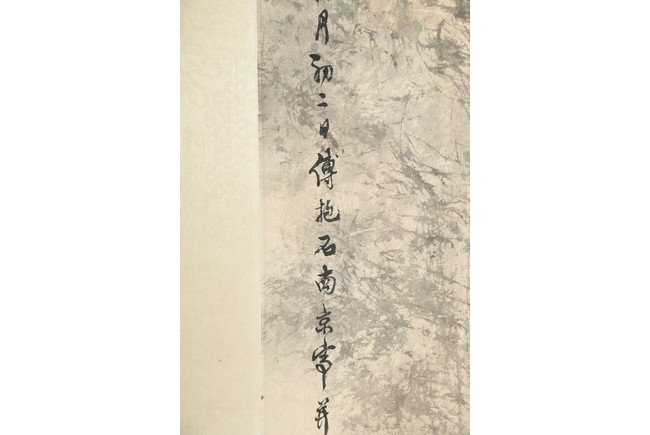 月初二日傅抱石南京寫並